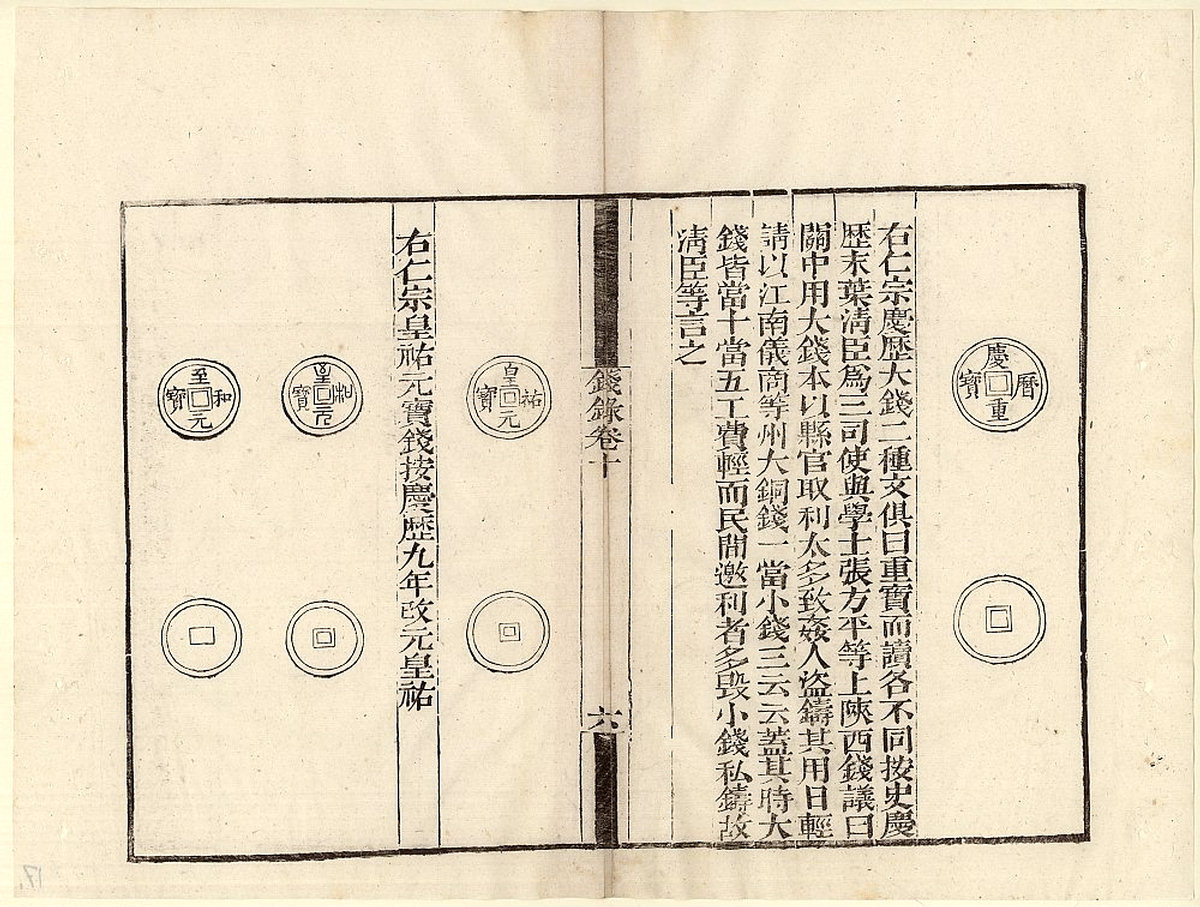 慶曆重寶
右仁宗慶歷大錢二種文俱曰重寶而讀各不同按史慶
歷末葉清臣為三司使與學士張方平等上陝西錢議曰
關中用大錢本以縣官取利太多致姦人盜鑄其用日輕
請以江南儀商等州大銅錢一當小錢三云云蓋其時大
錢皆當十當五工費輕而民間邀利者多毀小錢私鑄故
清臣等言之
錢錄卷十
六
皇祐元寶
右仁宗皇祐元寶錢按慶歷九年改元皇祐
至和元寶
至和元寶
17